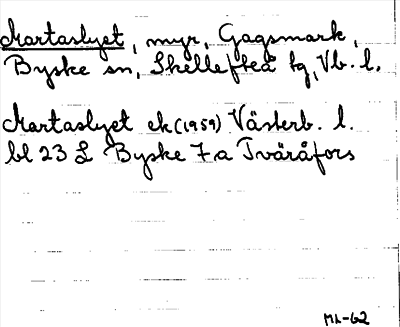 Martaslyet, myr, Gagsmark,
Byske sn, Skellefteå tg, Vb. l.
Martaslyet ek (1959) Västerb. l.
bl 23 L Byske 7a Tvåråfors
ML-62